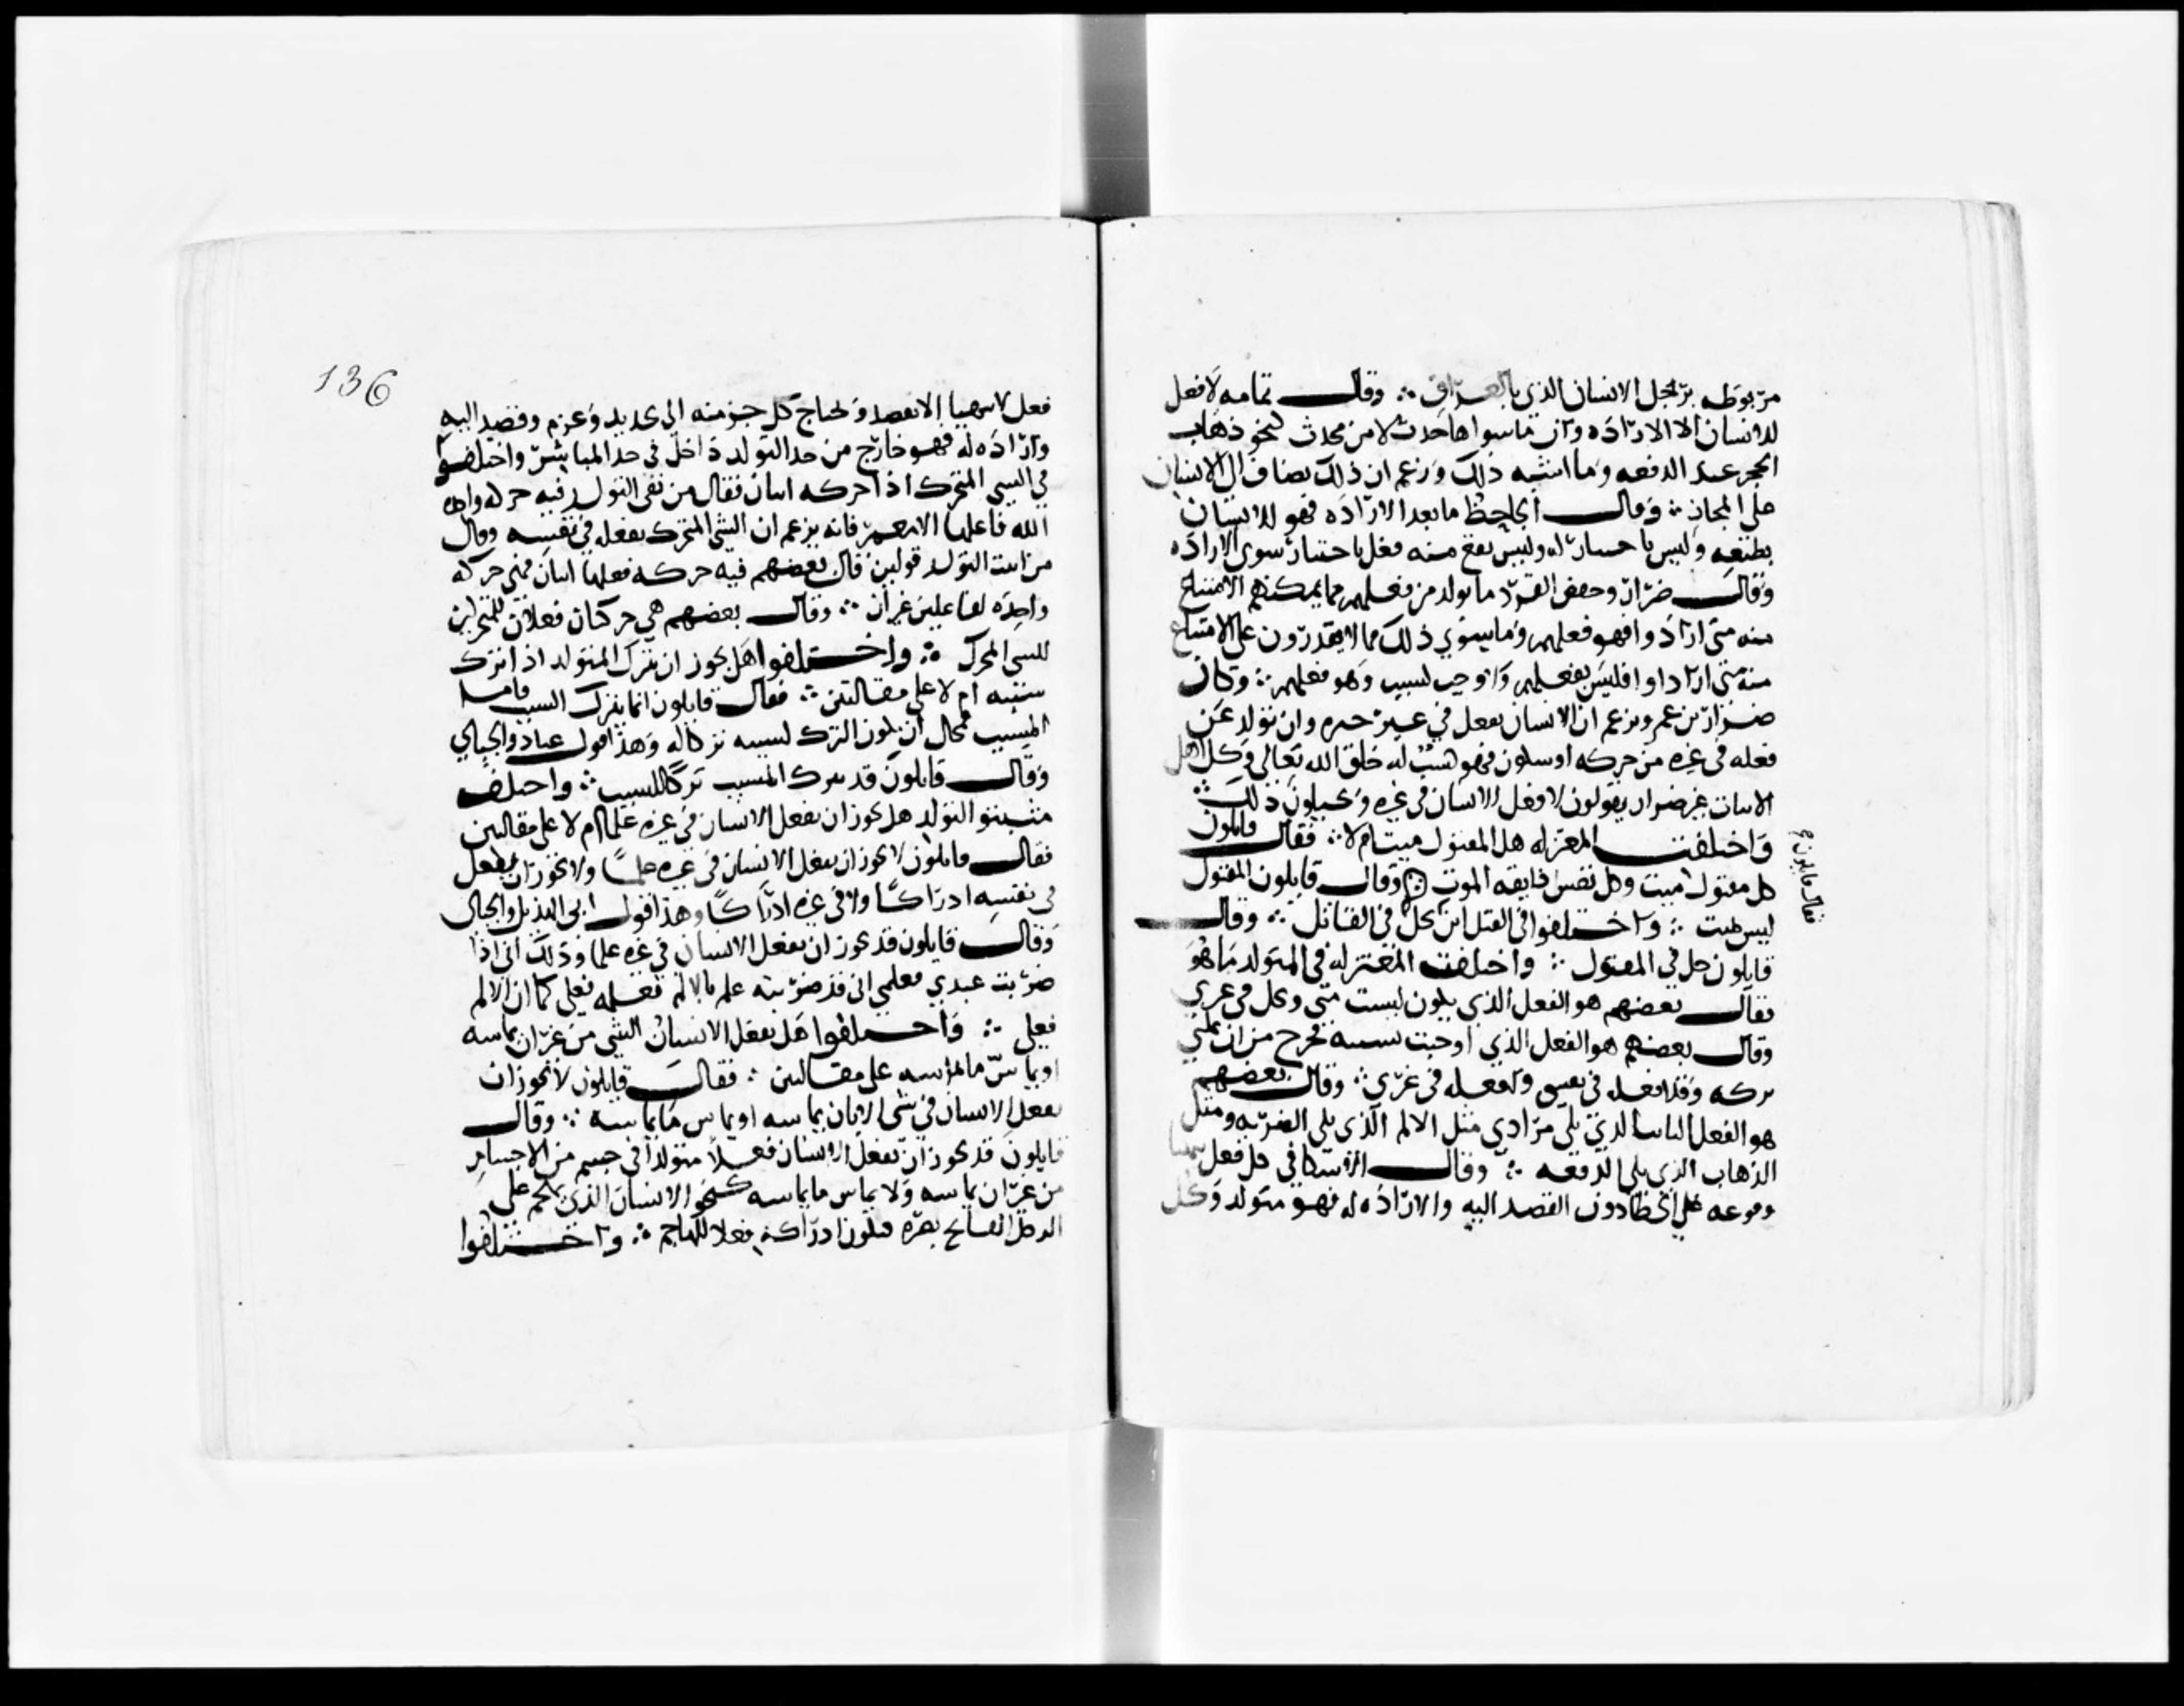 مربوطه برجل الانسان الذي بالعراق ؞ وقال ثمامه لا فعل
للانسان الا الاراده وان ما سواها حدث لا من محدث كنحو ذهاب
الحجر عند الدفعه وما اشبه ذلك وزعم ان ذلك يضاف الى الانسان
على المجاز ؞ وقال الجاحظ ما بعد الاراده فهو للانسان
بطبعه وليس باختيار له وليس يقع منه فعل باختيار سوى الاراده
وقال ضرار وحفص الفرد ما تولد من فعلهم مما يمكنهم الامتناع
منه متى ارادوا فهو فعلهم وما سوي ذلك مما لا يقدرون على الامتناع
منه متى ارادوا فليس بفعلهم ولا وجب لسبب وهو فعلهم ؞ وكان
ضرار بن عمرو يزعم ان الانسان يفعل في غير حيزه وان تولد عن
فعله في غيره من حركه او سكون فهو كسب له خلق الله تعالى وكل اهل
الاثبات غير ضرار يقولون لا فعل للانسان في غيره ويحيلون ذلك ؞
واختلفت المعتزله هل المقتول ميت ام لا ؞ فقال قايلون
كل مقتول ميت وكل نفس ذايقه الموت وقال قايلون المقتول
ليس بميت ؞ واختلفوا في القتل اين يحل في القاتل ؞ وقال
قايلون حل في المقتول ؞ واختلفت المعتزله في المتولد ما هو
فقال بعضهم هو الفعل الذي يكون بسبب مني ويحل في غيري
وقال بعضهم هو الفعل الذي اوجبت سببه فخرج من ان يمكنني
تركه وقد افعله في نفسي وافعله في غيري ؞ وقال بعضهم
هو الفعل الثالث الذي يلي مرادي مثل الالم الذي يلي الضربه ومثل
الذهاب الذي يلي الدفعه ؞ وقال الاسكافي كل فعل يتهيا
وقوعه على الخطا دون القصد اليه والاراده له فهو متولد وكل
فقال قايلون
136
فعل لا يتهيا الا بقصد ويحتاج كل جزء منه الى تجديد وعزم وقصد اليه
واراده له فهو خارج من حد التولد داخل في حد المباشر واختلفوا
في الشي المتحرك اذا حركه اثنان فقال من نفى التولد فيه حركه واحده
الله فاعلها الا معمر فانه يزعم ان الشي المتحرك يفعله في نفسه وقال
من اثبت التولد قولين قال بعضهم فيه حركه فعلها اثنان فهي حركه
واحده لفاعلين غيران ؞ وقال بعضهم هي حركتان فعلان للمتحركين
للشي المحرك ؞ واختلفوا هل يجوز ان يترك المتولد اذا ترك
سببه ام لا على مقالتين ؞ فقال قايلون انما يترك السبب فاما
المسبب فمحال ان يكون الترك لسببه تركا له وهذا قول عباد والجبايي
وقال قايلون قد يترك المسبب تركا للسبب ؞ واختلف
مثبتو التولد هل يجوز ان يفعل الانسان في غيره علما ام لا على مقالتين
فقال قايلون لا يجوز ان يفعل الانسان في غيره علما ولا يجوز ان يفعل
في نفسه ادراكا ولا في غيره ادراكا وهذا قول ابى الهذيل والجبائى
وقال قايلون قد يجوز ان يفعل الانسان في غيره علما وذلك اني اذا
ضربت عبدي فعلمي اني قد ضربته علم بالالم فعلمه فعلي كما ان الالم
فعلي ؞ واختلفوا هل يفعل الانسان الشي من غير ان يماسه
او يماس ما ماسه على مقالتين ؞ فقال قايلون لا يجوز ان
يفعل الانسان في شي الا بان يماسه او يماس ما يماسه ؞ وقال
قايلون قد يجوز ان يفعل الانسان فعلا متولدا في جسم من الاجسام
من غير ان يماسه ولا يماس ما يماسه كنحو الانسان الذي يهجم على
الرجل الفاتح بصره فيكون ادراكه فعلا للهاجم ؞ واختلفوا